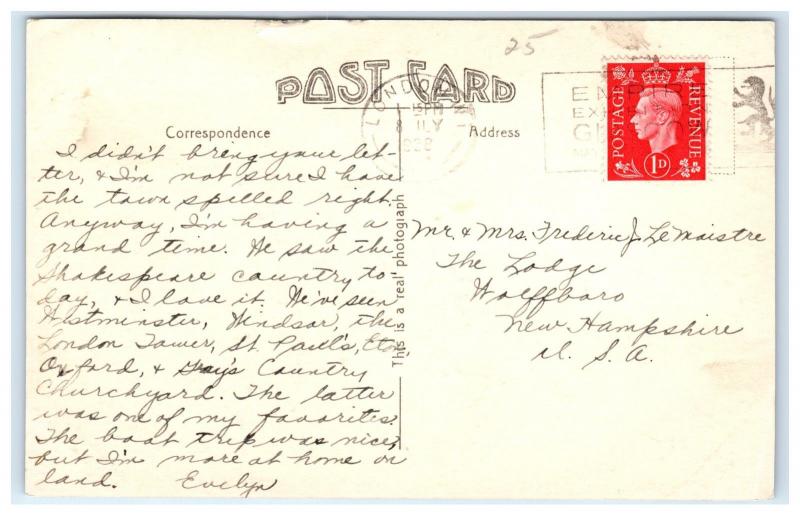 25
POST CARD
LONDON
15 PM
8 JLY
POSTAGE
REVENUE
1D
EMPIRE
EX
Correspondence
Address
I didn't bring your let-
ter, & I'm not sure I have
the town spelled right.
Anyway, I'm having a
grand time. We saw the
Shakespeare country to-
day, & I love it. We've seen
Westminster, Windsor, the
London Tower, St. Paul's, Eton,
Oxford, & Gray's Country
Churchyard. The latter
was one of my favorites.
The boat trip was nice,
but I'm more at home on
land. Evelyn
This is a 'real' photograph
Mr. & Mrs. Frederic J. LeMaistre
The Lodge
Wolffboro
New Hampshire
U. S. A.